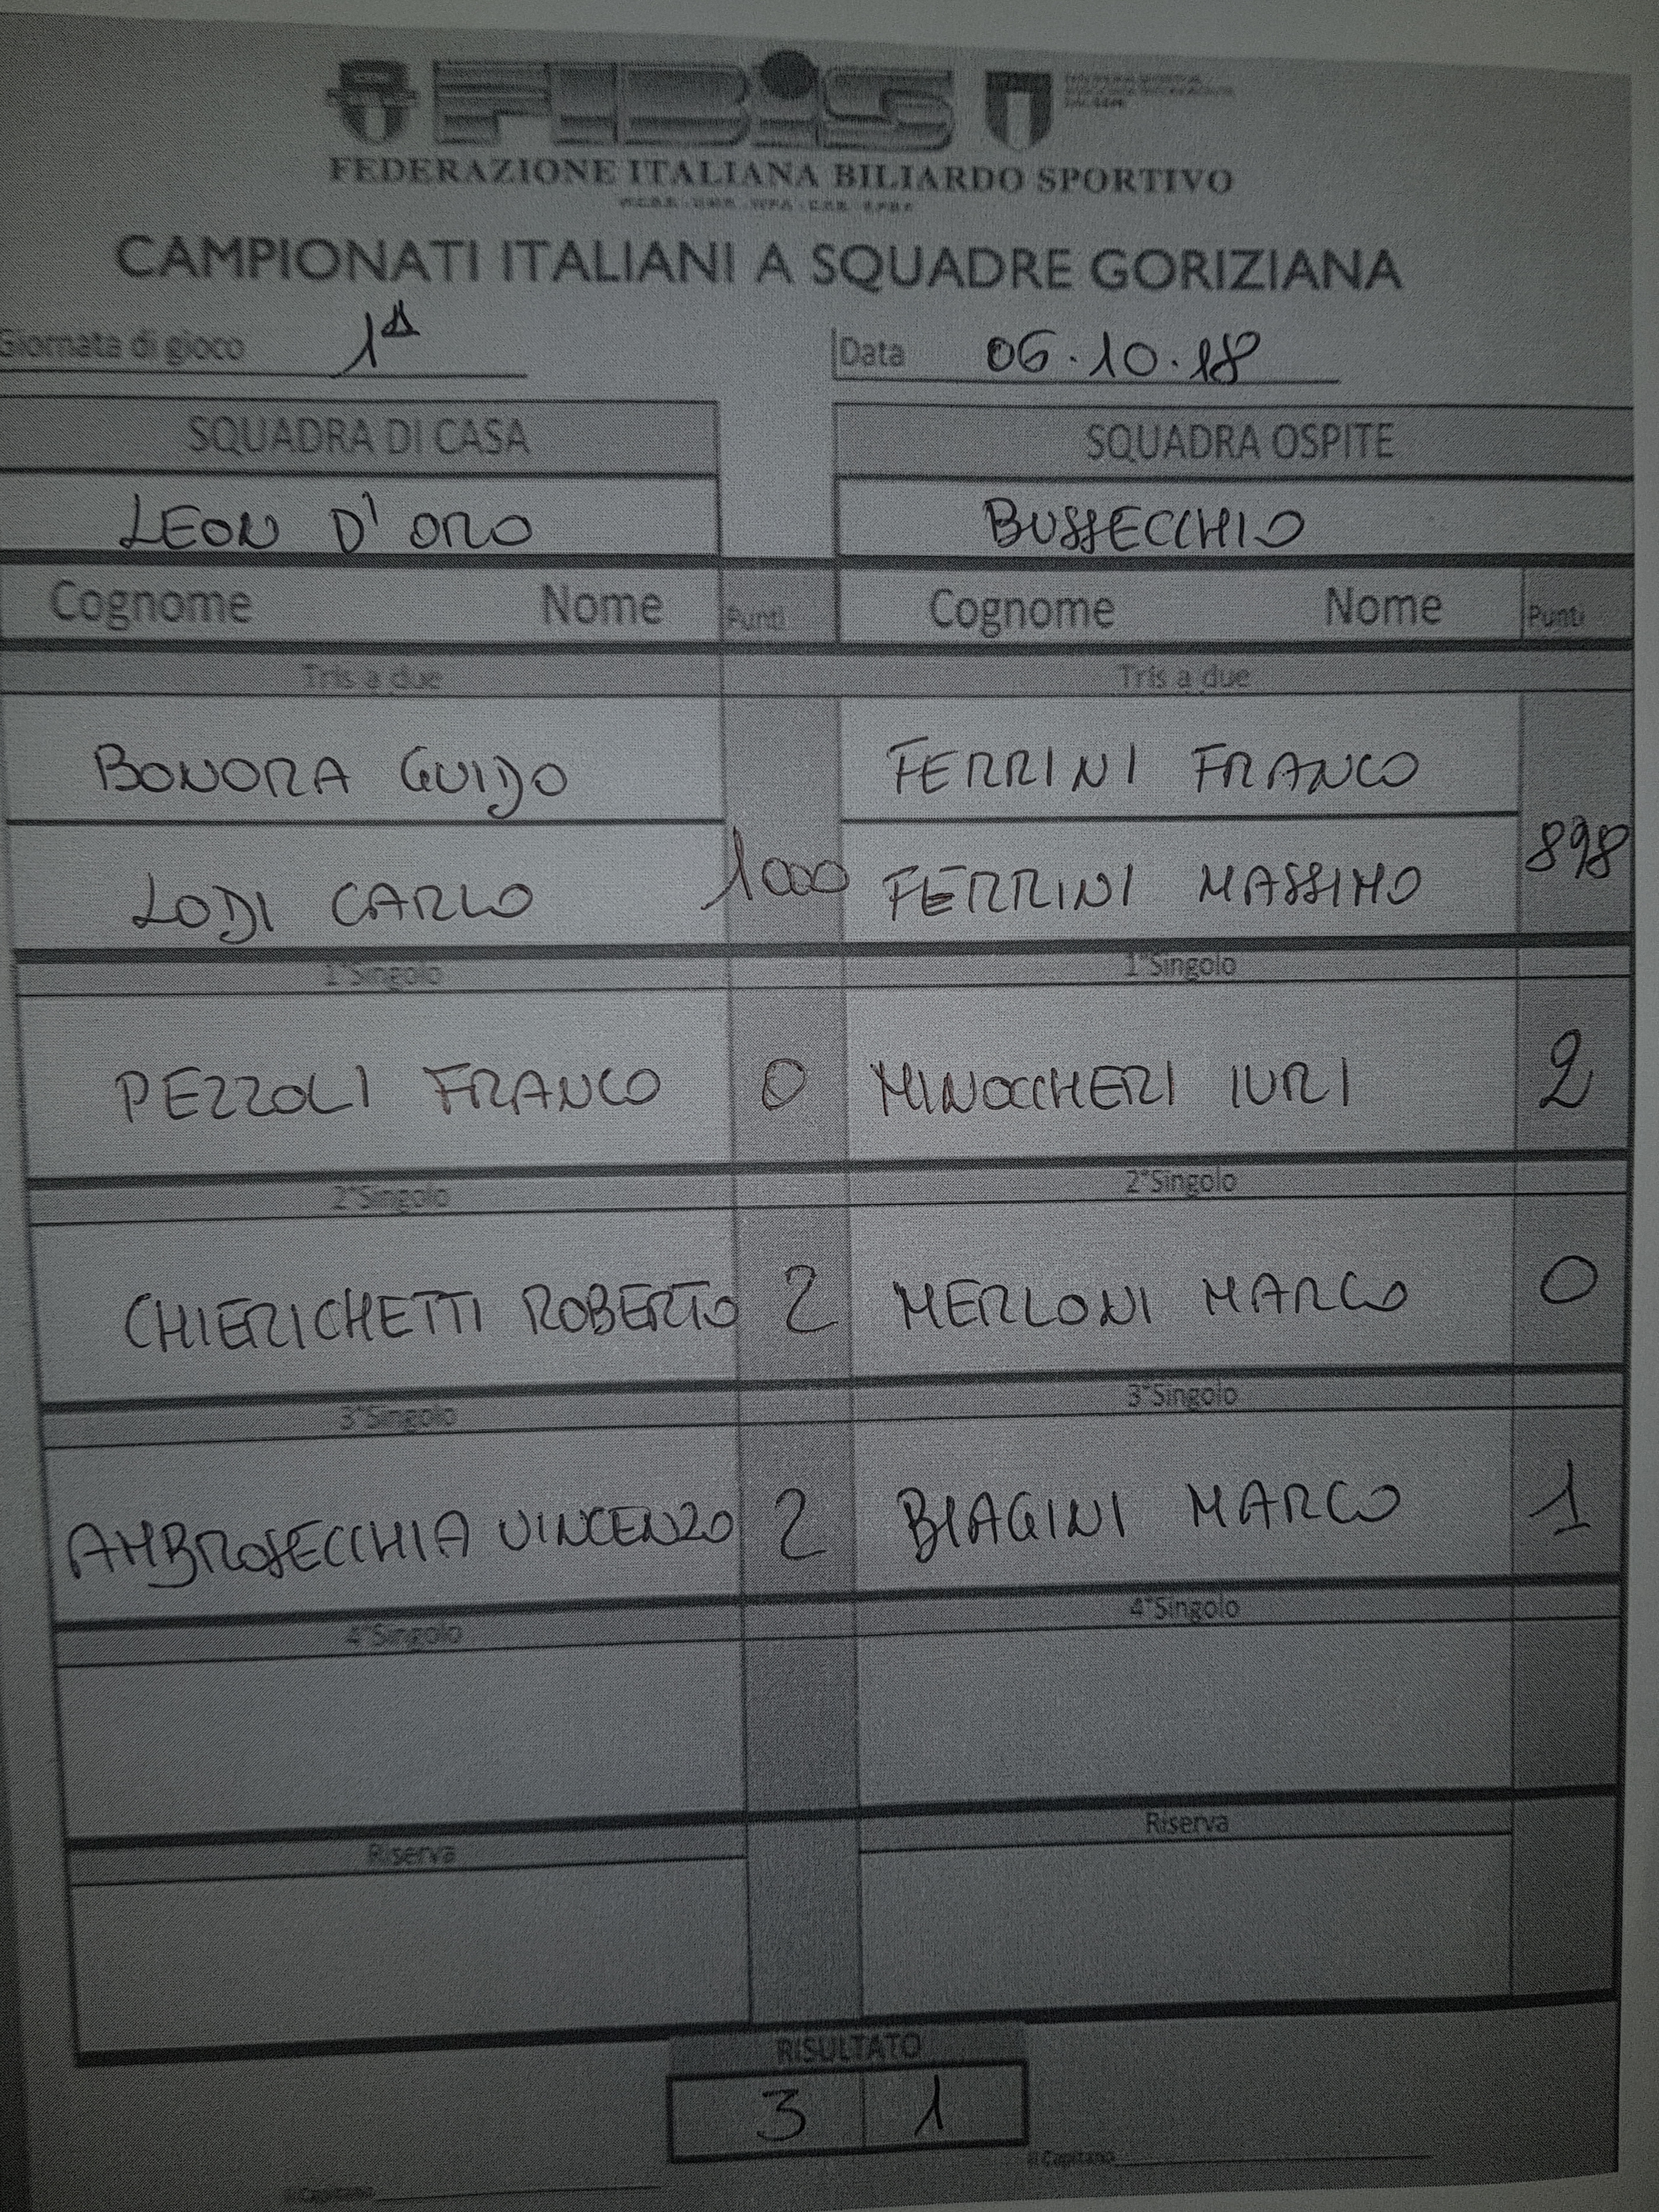 FIBiS
FEDERAZIONE ITALIANA BILIARDO SPORTIVO
CAMPIONATI ITALIANI A SQUADRE GORIZIANA
Giornata di gioco 1ª Data 06.10.18
SQUADRA DI CASA SQUADRA OSPITE
LEON D'ORO BUSSECCHIO
Cognome Nome Punti Cognome Nome Punti
Tris a due Tris a due
BONORA GUIDO FERRINI FRANCO
LODI CARLO 1000 FERRINI MASSIMO 898
1°Singolo 1°Singolo
PEZZOLI FRANCO 0 MINOCCHERI IURI 2
2°Singolo 2°Singolo
CHIERICHETTI ROBERTO 2 MERLONI MARCO 0
3°Singolo 3°Singolo
AMBROSECCHIA VINCENZO 2 BIAGINI MARCO 1
4°Singolo 4°Singolo
Riserva Riserva
RISULTATO
3 1
il Capitano il Capitano